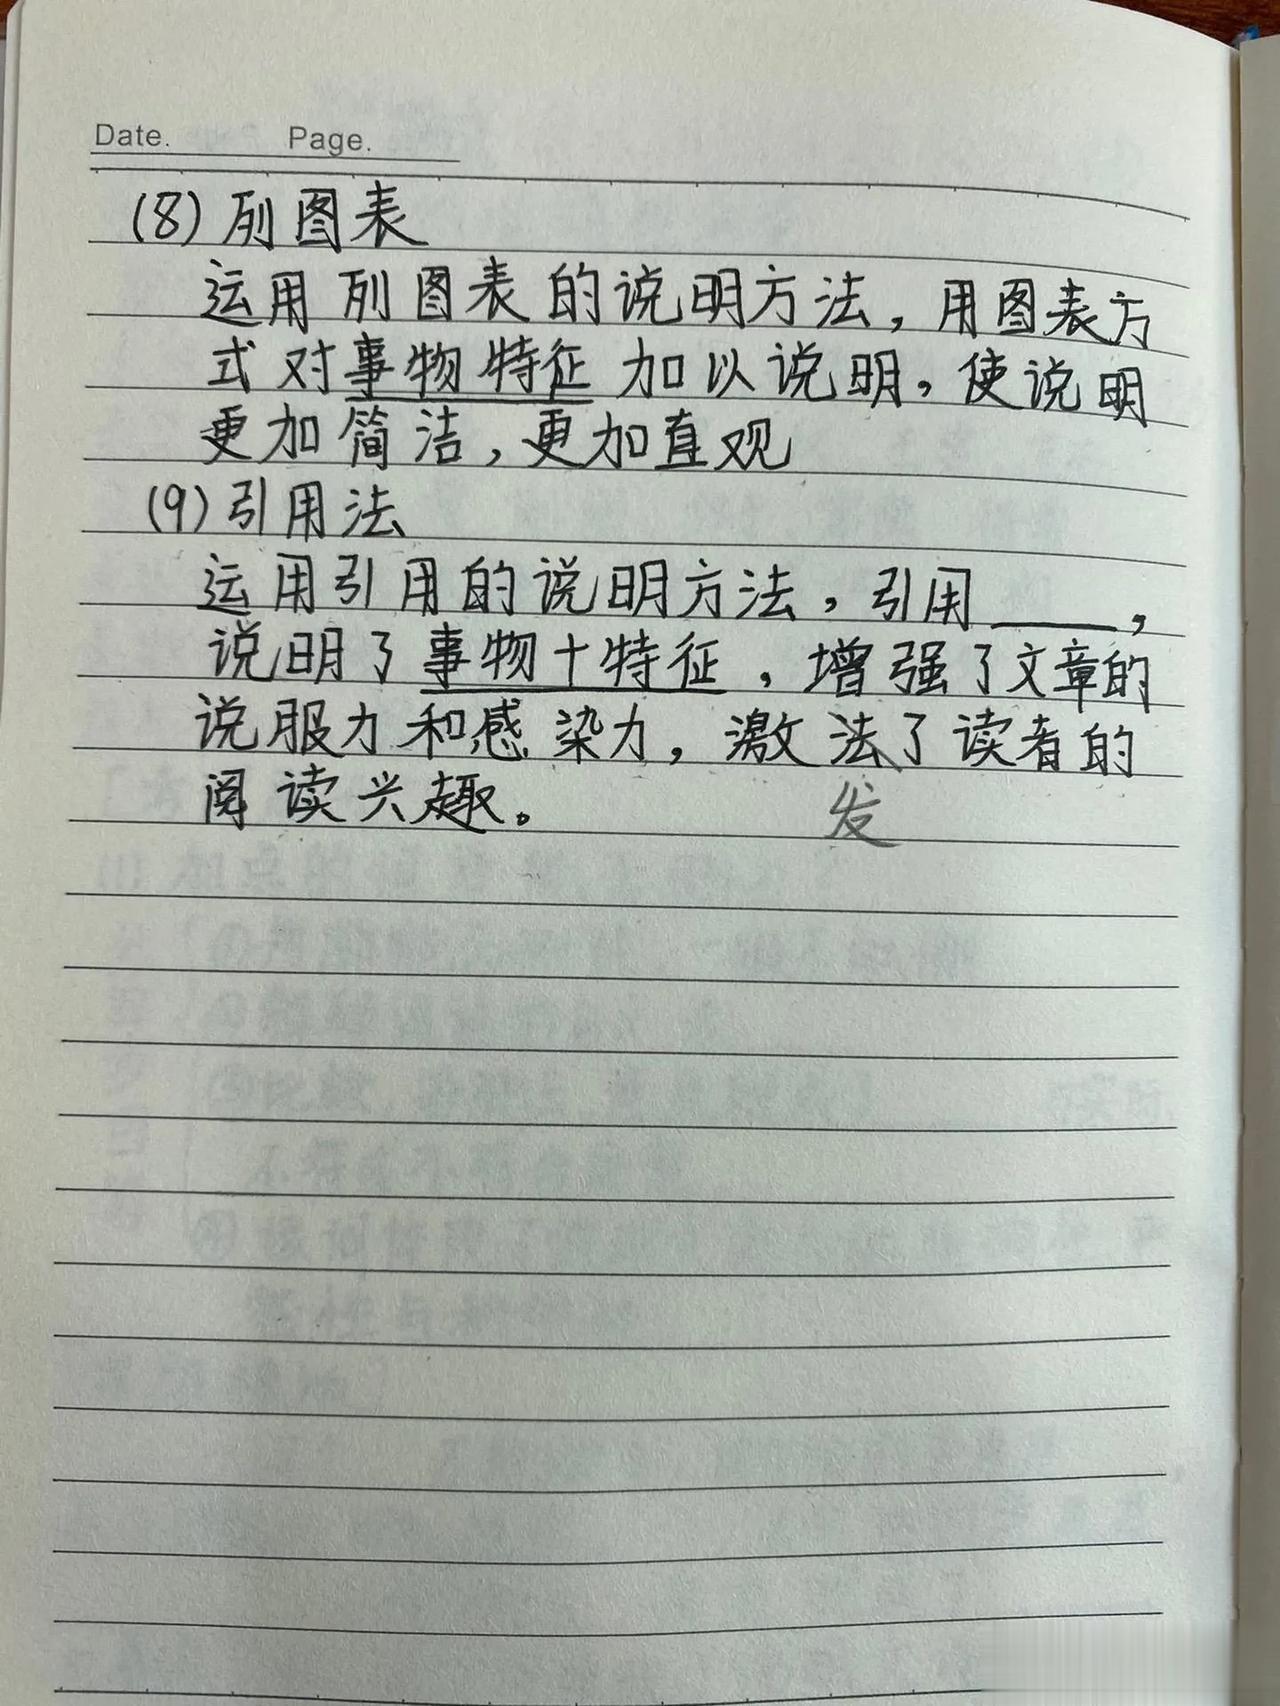 Date. Page.
(8) 列图表
运用列图表的说明方法，用图表方
式对事物特征加以说明，使说明
更加简洁，更加直观
(9) 引用法
运用引用的说明方法，引用____，
说明了事物+特征，增强了文章的
说服力和感染力，激法了读者的
阅读兴趣。
发